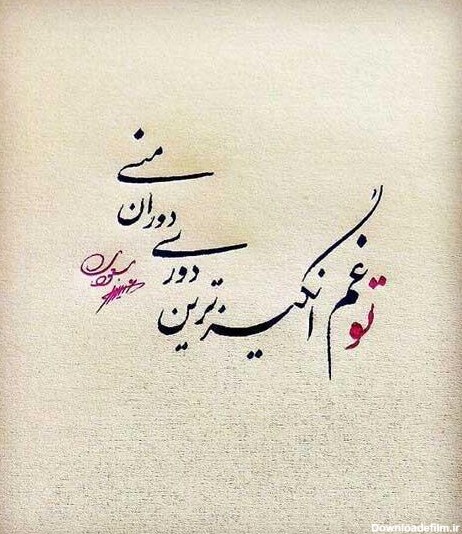 تو غم انگیزترین
دوری
دوران
منی
Downloadefilm.ir